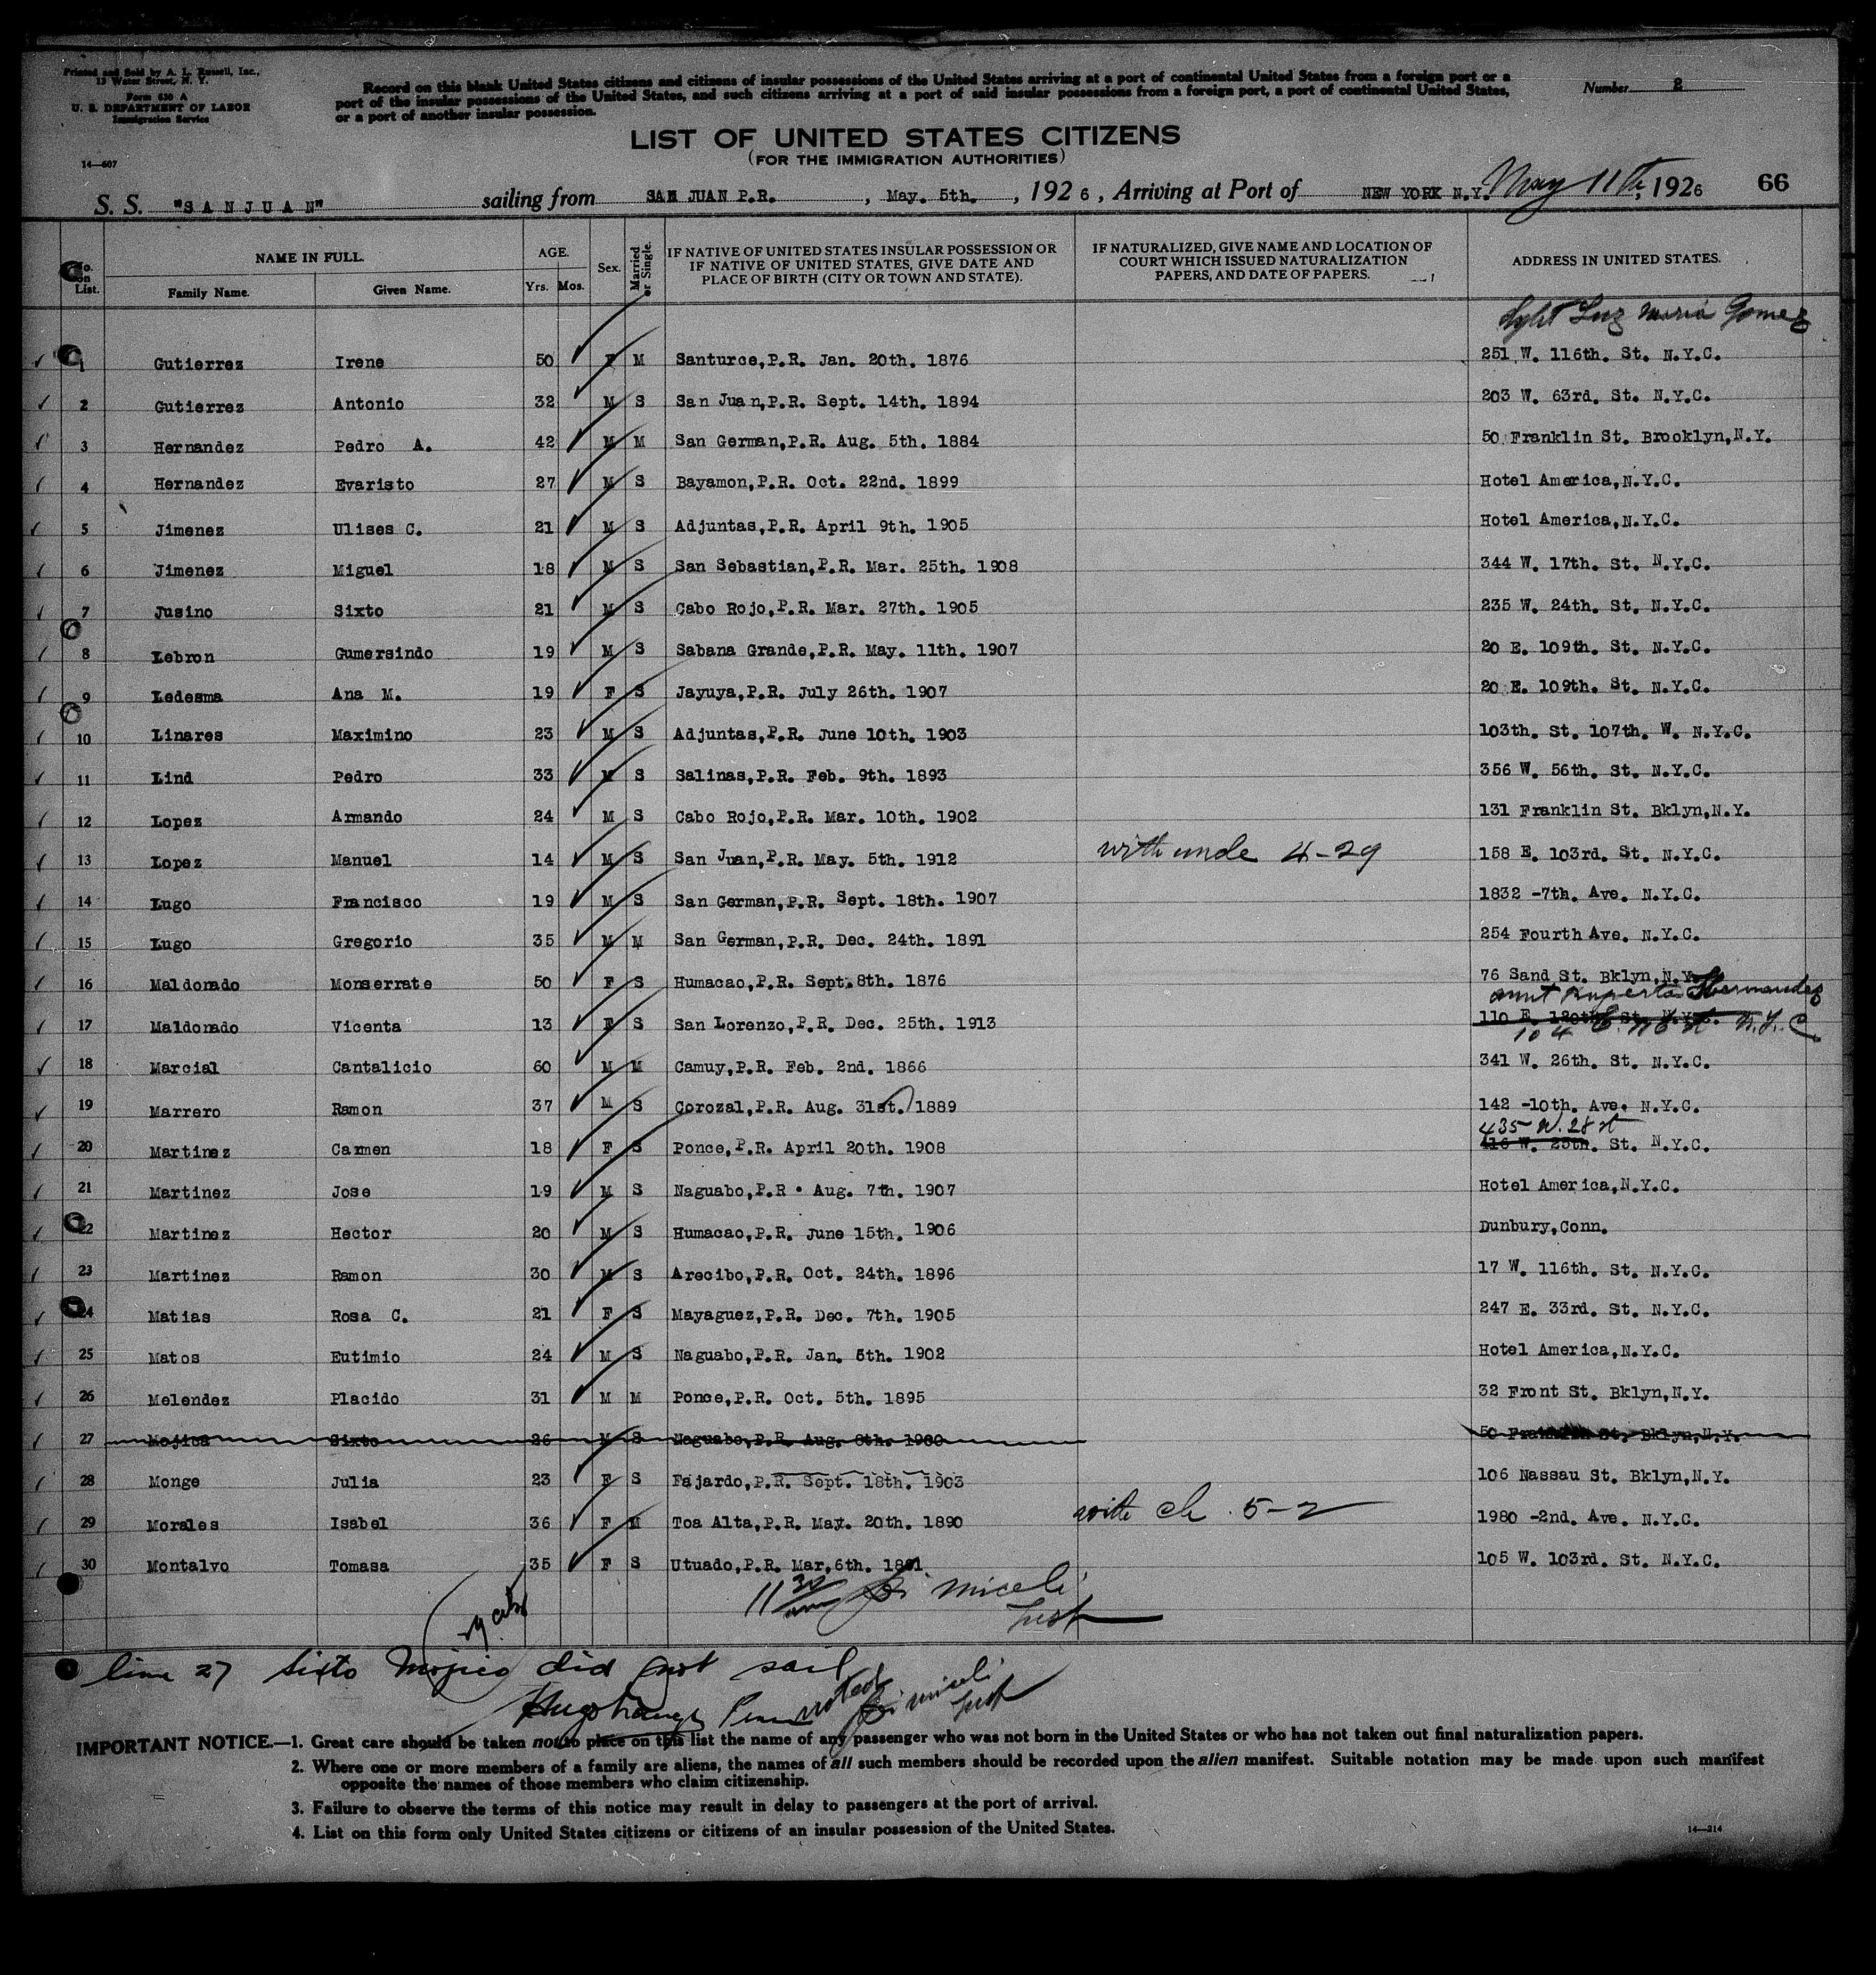 Printed and Sold by A. L. Russell, Inc.,
13 Water Street, N. Y.
Form 630 A
U. S. DEPARTMENT OF LABOR
Immigration Service
14—607
Record on this blank United States citizens and citizens of insular possessions of the United States arriving at a port of continental United States from a foreign port or a
port of the insular possessions of the United States, and such citizens arriving at a port of said insular possessions from a foreign port, a port of continental United States,
or a port of another insular possession.
Number 2
LIST OF UNITED STATES CITIZENS
(FOR THE IMMIGRATION AUTHORITIES)
S. S. "SANJUAN" sailing from SAN JUAN P.R. , May. 5th. , 192 6 , Arriving at Port of NEW YORK N.Y. May 11th, 1926 66
No. on List. NAME IN FULL. Family Name. Given Name. AGE. Yrs. Mos. Sex. Married or Single. IF NATIVE OF UNITED STATES INSULAR POSSESSION OR IF NATIVE OF UNITED STATES, GIVE DATE AND PLACE OF BIRTH (CITY OR TOWN AND STATE). IF NATURALIZED, GIVE NAME AND LOCATION OF COURT WHICH ISSUED NATURALIZATION PAPERS, AND DATE OF PAPERS. ADDRESS IN UNITED STATES.
Luz Maria Gomez
1 Gutierrez Irene 50 F M Santurce,P.R. Jan. 20th. 1876 251 W. 116th. St. N.Y.C.
2 Gutierrez Antonio 32 M S San Juan,P.R. Sept. 14th. 1894 203 W. 63rd. St. N.Y.C.
3 Hernandez Pedro A. 42 M M San German,P.R. Aug. 5th. 1884 50 Franklin St. Brooklyn,N.Y.
4 Hernandez Evaristo 27 M S Bayamon,P.R. Oct. 22nd. 1899 Hotel America,N.Y.C.
5 Jimenez Ulises C. 21 M S Adjuntas,P.R. April 9th. 1905 Hotel America,N.Y.C.
6 Jimenez Miguel 18 M S San Sebastian,P.R. Mar. 25th. 1908 344 W. 17th. St. N.Y.C.
7 Jusino Sixto 21 M S Cabo Rojo,P.R. Mar. 27th. 1905 235 W. 24th. St. N.Y.C.
8 Lebron Gumersindo 19 M S Sabana Grande,P.R. May. 11th. 1907 20 E. 109th. St. N.Y.C.
9 Ledesma Ana M. 19 F S Jayuya,P.R. July 26th. 1907 20 E. 109th. St. N.Y.C.
10 Linares Maximino 23 M S Adjuntas,P.R. June 10th. 1903 103th. St. 107th. W. N.Y.C.
11 Lind Pedro 33 M S Salinas,P.R. Feb. 9th. 1893 356 W. 56th. St. N.Y.C.
12 Lopez Armando 24 M S Cabo Rojo,P.R. Mar. 10th. 1902 131 Franklin St. Bklyn,N.Y.
13 Lopez Manuel 14 M S San Juan,P.R. May. 5th. 1912 with uncle 4-29 158 E. 103rd. St. N.Y.C.
14 Lugo Francisco 19 M S San German,P.R. Sept. 18th. 1907 1832 -7th. Ave. N.Y.C.
15 Lugo Gregorio 35 M M San German,P.R. Dec. 24th. 1891 254 Fourth Ave. N.Y.C.
16 Maldonado Monserrate 50 F S Humacao,P.R. Sept. 8th. 1876 76 Sand St. Bklyn,N.Y.
aunt Ruperta Hernandez
17 Maldonado Vicenta 13 F S San Lorenzo,P.R. Dec. 25th. 1913 110 E. 120th St. N.Y.C.
104 E. St N.Y.C
18 Marcial Cantalicio 60 M M Camuy,P.R. Feb. 2nd. 1866 341 W. 26th. St. N.Y.C.
19 Marrero Ramon 37 M S Corozal,P.R. Aug. 31st. 1889 142 -10th. Ave. N.Y.C.
435 W. 28 st
20 Martinez Carmen 18 F S Ponce,P.R. April 20th. 1908 416 W. 25th. St. N.Y.C.
21 Martinez Jose 19 M S Naguabo,P.R. Aug. 7th. 1907 Hotel America,N.Y.C.
22 Martinez Hector 20 M S Humacao,P.R. June 15th. 1906 Dunbury,Conn.
23 Martinez Ramon 30 M S Arecibo,P.R. Oct. 24th. 1896 17 W. 116th. St. N.Y.C.
24 Matias Rosa C. 21 F S Mayaguez,P.R. Dec. 7th. 1905 247 E. 33rd. St. N.Y.C.
25 Matos Eutimio 24 M S Naguabo,P.R. Jan. 5th. 1902 Hotel America,N.Y.C.
26 Melendez Placido 31 M M Ponce,P.R. Oct. 5th. 1895 32 Front St. Bklyn,N.Y.
27 Mojica Sixto 26 M S Naguabo,P.R. Aug. 6th. 1900 50 Franklin St. Bklyn,N.Y.
28 Monge Julia 23 F S Fajardo,P.R. Sept. 18th. 1903 106 Nassau St. Bklyn,N.Y.
29 Morales Isabel 36 F M Toa Alta,P.R. May. 20th. 1890 with ch. 5-2 1980 -2nd. Ave. N.Y.C.
30 Montalvo Tomasa 35 F S Utuado,P.R. Mar,6th. 1891 105 W. 103rd. St. N.Y.C.
11 30 am miceli
Insp
line 27 Sixto Mojica did not sail
noted miceli
Insp
IMPORTANT NOTICE.—1. Great care should be taken not to place on this list the name of any passenger who was not born in the United States or who has not taken out final naturalization papers.
2. Where one or more members of a family are aliens, the names of all such members should be recorded upon the alien manifest. Suitable notation may be made upon such manifest
opposite the names of those members who claim citizenship.
3. Failure to observe the terms of this notice may result in delay to passengers at the port of arrival.
4. List on this form only United States citizens or citizens of an insular possession of the United States.
14—214